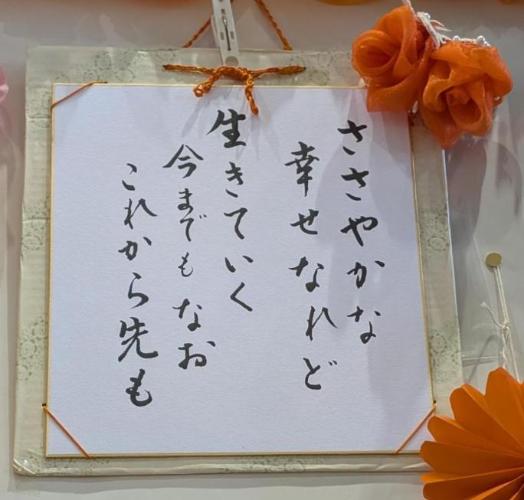 ささやかな
幸せなれど
生きていく
今までもなお
これから先も